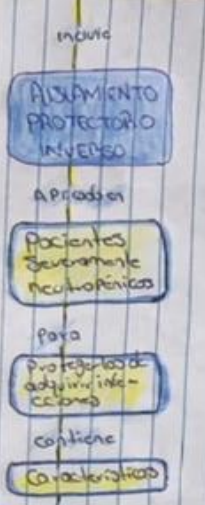 incluye
AISLAMIENTO
PROTECTOR O
INVERSO
Aplicado en
Pacientes
Severamente
neutropénicos
Para
Protegerlos de
adquirir infe-
cciones
contiene
Características